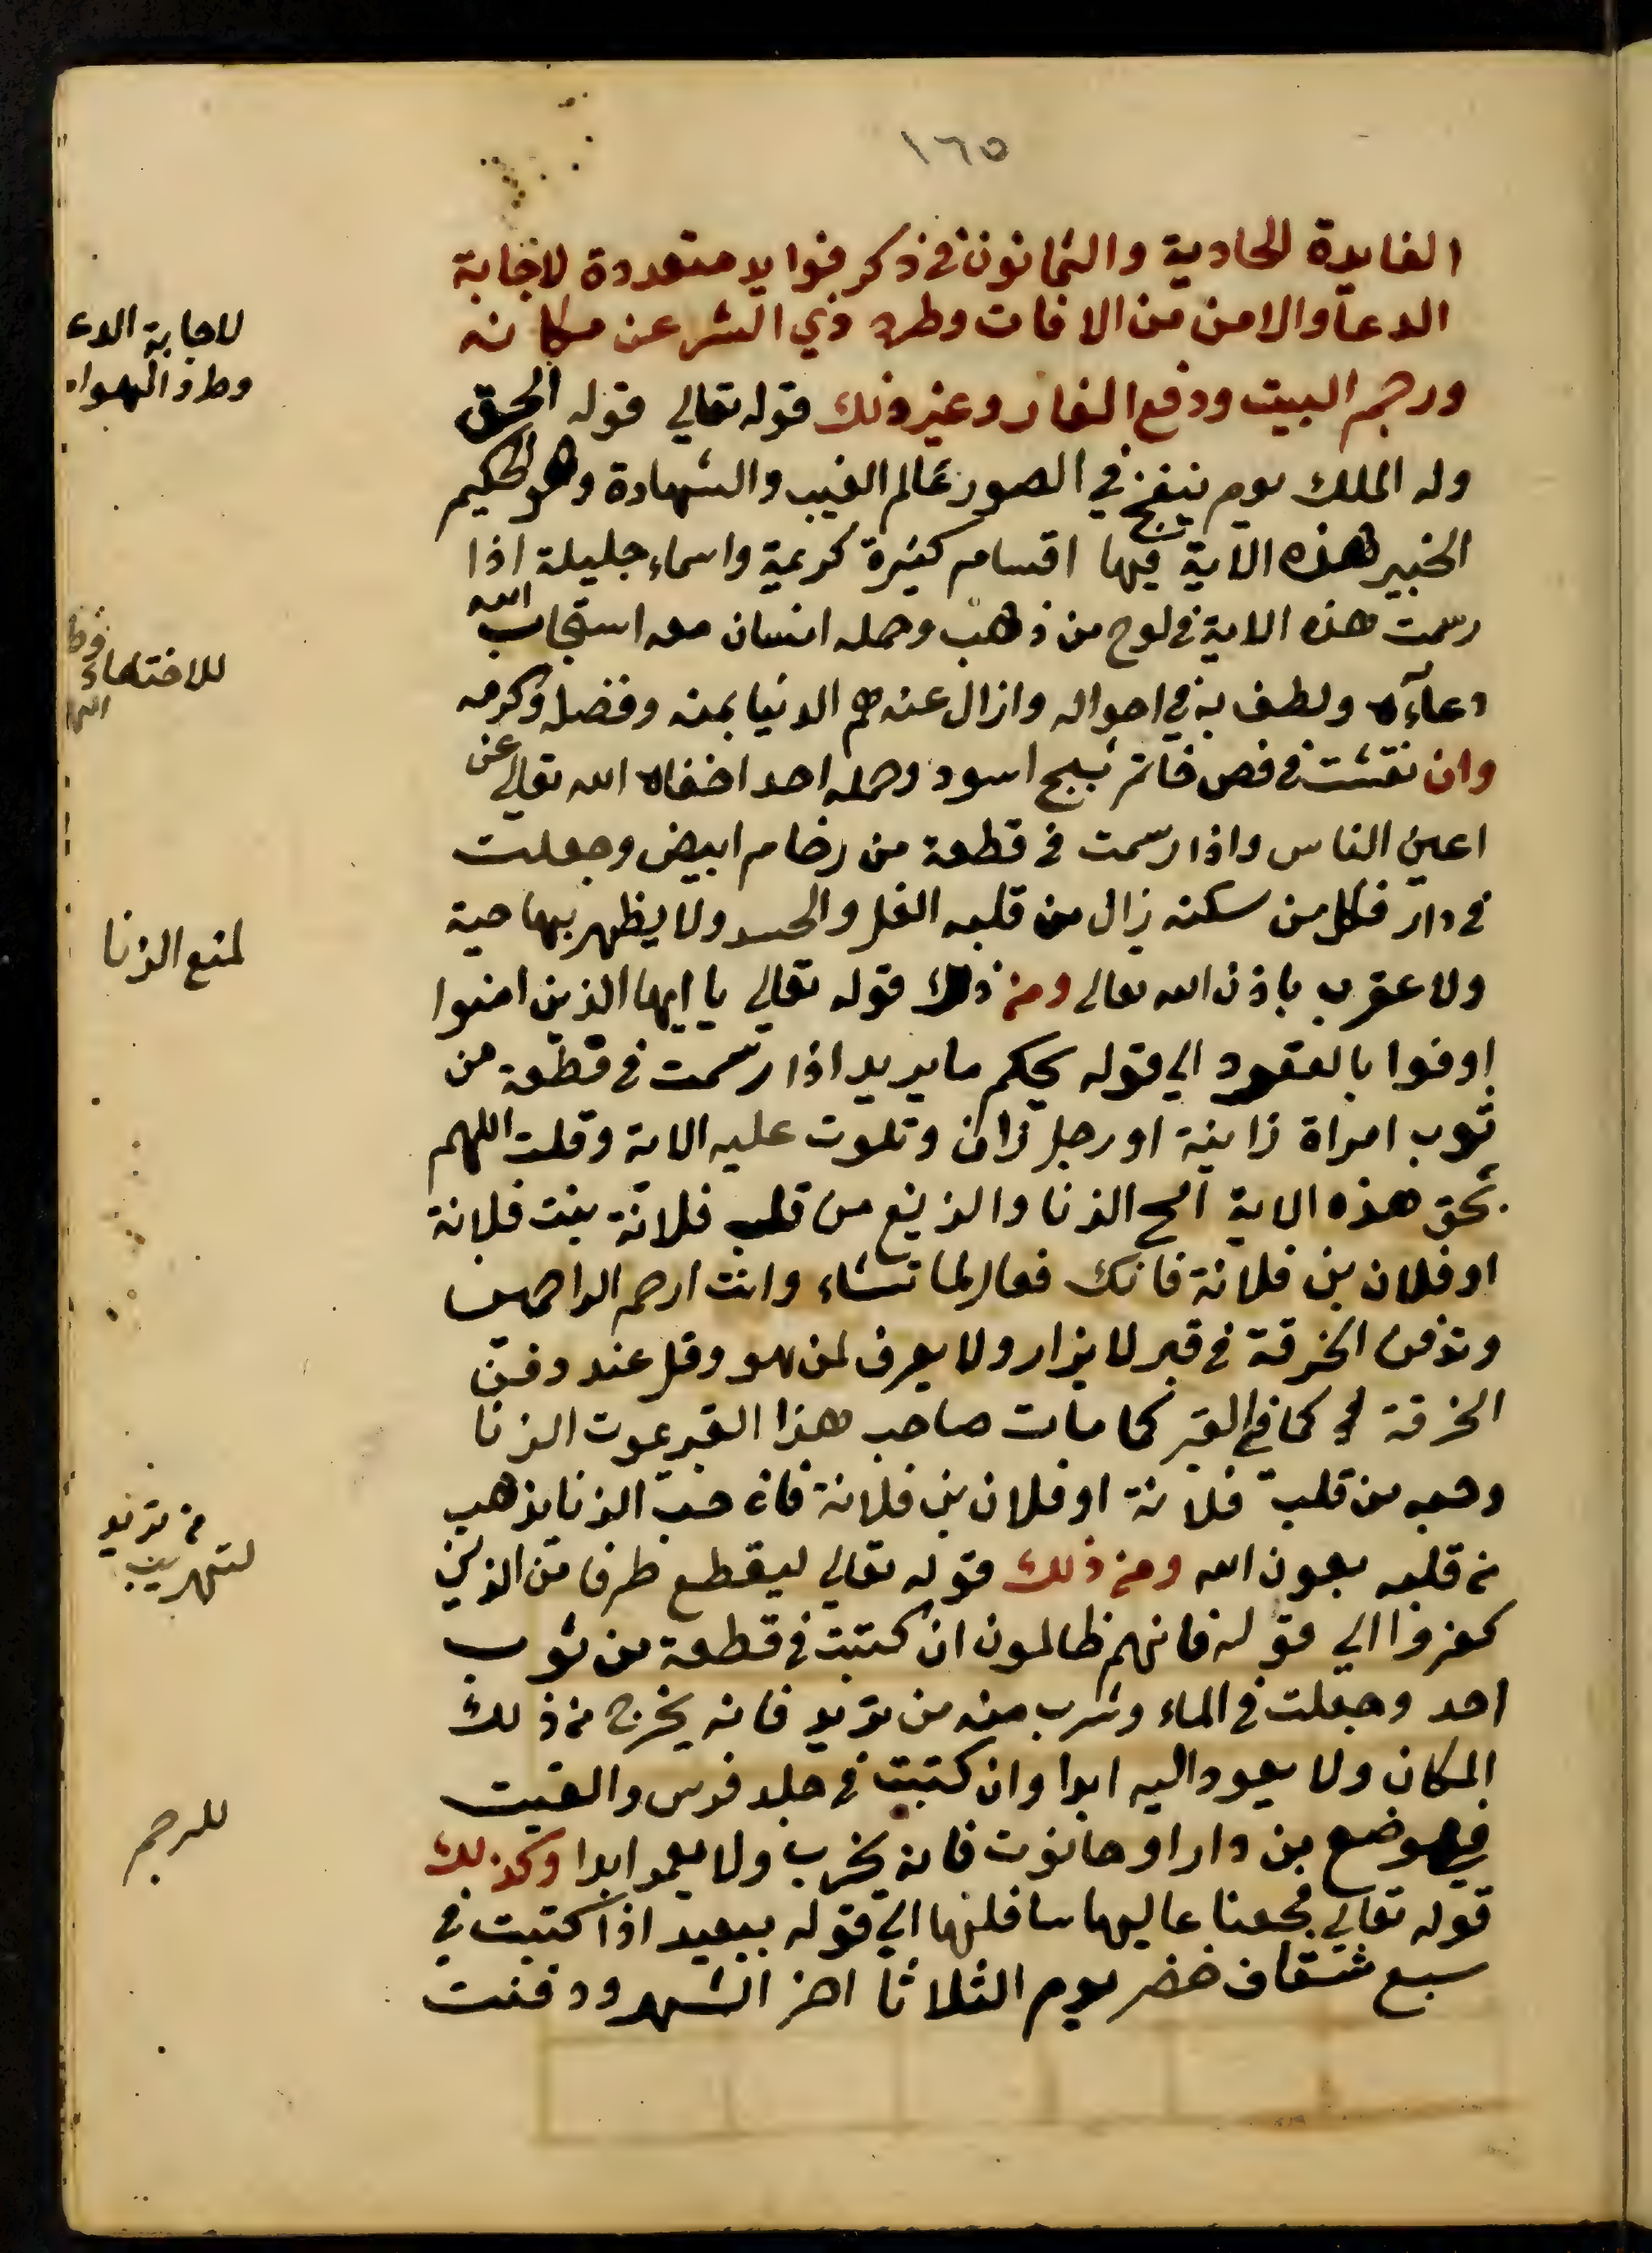 ١٦٥
الفايدة الحادية والثمانون في ذكر فوايد متعددة لاجابة
الدعا والامن من الافات وطرد ذي الشر عن مكانه
ورجم البيت ودفع الفار وغير ذلك قوله تعالي قوله الحق
وله الملك يوم ينفخ في الصور عالم الغيب والشهادة وهو الحكيم
الخبير هذه الاية فيها اقسام كثيرة كريمة واسماء جليلة اذا
رسمت هذه الاية في لوح من ذهب وحمله انسان معه استجاب الله
دعآءه ولطف به في احواله وازال عنه هم الدنيا بمنه وفضله وكرمه
وان نقشت في فص خاتم سبج اسود وحمله احد اخفاه الله تعالي عن
اعين الناس واذا رسمت في قطعة من رخام ابيض وجعلت
في دار فكل من سكنه زال من قلبه الغل والحسد ولا يظهر بها حية
ولا عقرب باذن الله تعالى ومن ذلك قوله تعالي يا ايها الذين امنوا
اوفوا بالعقود الي قوله يحكم ما يريد اذا رسمت في قطعة من
ثوب امراة زانية او رجل زان وتلوت عليه الاية وقلت اللهم
بحق هذه الاية امح الزنا والزيغ من قلب فلانة بنت فلانة
او فلان بن فلانة فانك فعال لما تشاء وانت ارحم الراحمين
وتدفن الخرقة في قبر لا يزار ولا يعرف لمن هو وقل عند دفن
الخرقة في القبر كما مات صاحب هذا القبر يموت الزنا
وحبه من قلب فلانة او فلان بن فلانة فان حب الزنا يذهب
من قلبه بعون الله ومن ذلك قوله تعالي ليقطع طرفا من الذين
كفروا الي قوله فانهم ظالمون ان كتبت في قطعة من ثوب
احد وجعلت في الماء وشرب منه من تريد فانه يخرج من ذلك
المكان ولا يعود اليه ابدا وان كتبت في جلد فرس والقيت
في موضع من دار او حانوت فانه يخرب ولا يعمر ابدا وكذلك
قوله تعالي فجعلنا عاليها سافلها الي قوله ببعيد اذا كتبت في
سبع شقاف خضر يوم الثلاثا اخر الشهر ودفنت
لاجابة الدعا
وطرد الهوام
للاختفاء
لمنع الزنا
من تريد
لتهريب
للرجم